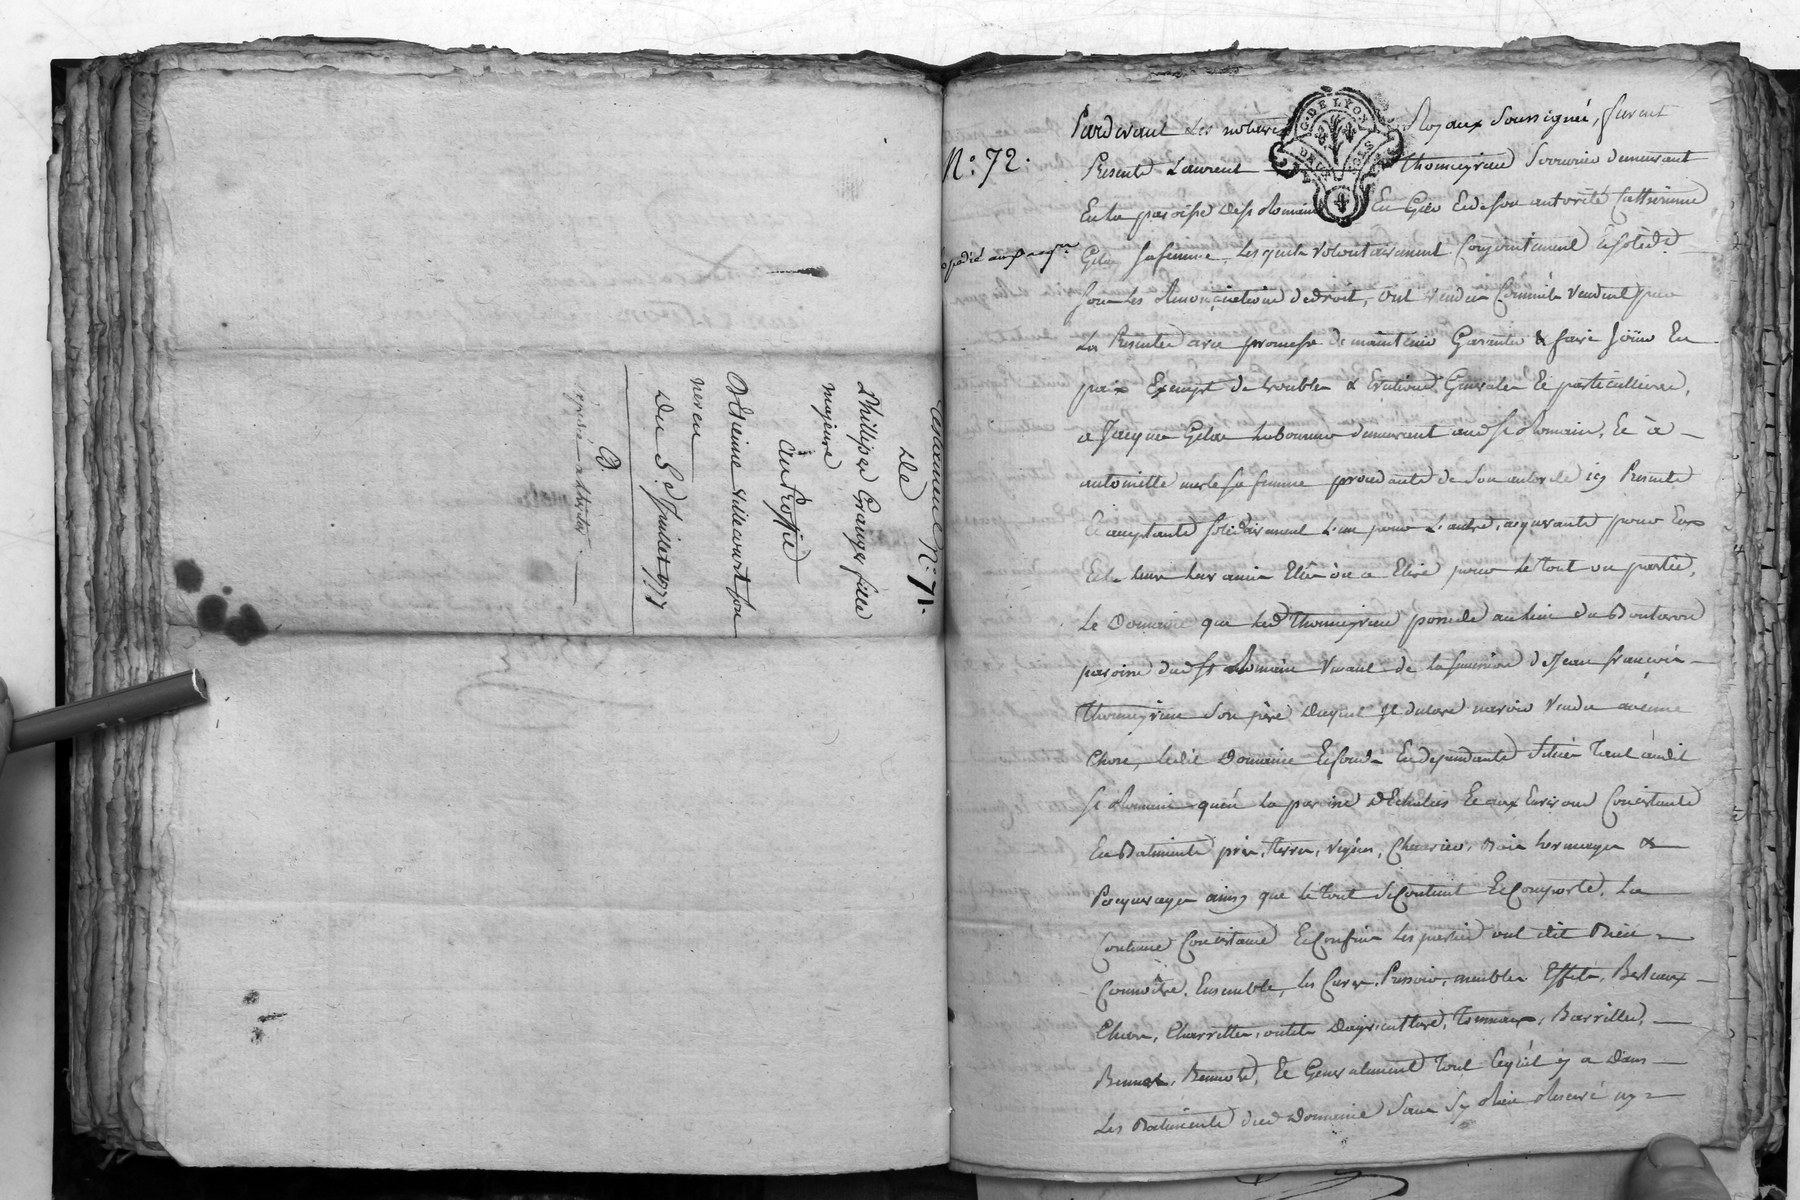 Testament N.° 71.
De
Phillipa Grange fille
majeure
Au Proffit
D'Etienne Villecourt son
neveu
Du 5.e Juillet 1777
Expédié a l'héritier
G. DE LYON
DEUX SOLS
N.° 72.
Expedié aux acq.rs
Pardevant les notaires Royaux soussignés, furent
Presents Laurent Thomeyrieu demeurant
En la paroisse de St Romain En Gier Et de son autorité Catherinne
Gelas sa femme, Lesquels volontairement Conjointement Et solid.t
sous les Renonciations de droit, ont vendu Comme ils vendent par
Les Presentes avec promesse de maintenir Garantir & faire jouir En
paix Exempt de troubles & Evictions Generales Et particullieres,
a Jacques Gelas Laboureur demeurant aud St Romain, Et à
antoinette merle sa femme procedante de Son autorité icy Presents
Et acceptants solidairement L'un pour L'autre, acquerants pour Eux
Et les leurs leurs amis Elus ou a Elire pour le tout ou partie,
Le Domaine que led Thomeyrieu possede au lieu du Boutaron
paroisse dud St Romain venant de la succession de Jean françois
Thomeyrieu Son père Duquel Il declare n'avoir vendu aucune
Chose, ledit Domaine Et fonds En dependants Situés tant audit
St Romain qu'en la paroisse D'Echalas Et aux Environs Consistants
En Batiments prés, terres, vignes, Bois hermages &
Pacquerages ainsy que le tout se Contient Et Comporte, La
Contenue Consistance Et Confins les parties ont dit Bien
Connoitre, Ensemble, les Cuves, Pressoir, meubles Effets, Bestiaux
Chars, Charrettes, outils D'agriculture, Tonneaux, Barrilles,
Bennes, Bennots, Et Generalement tout Ce qu'il y a Dans
Les Batiments dud Domaine Sans s'y Rien Reservé ny